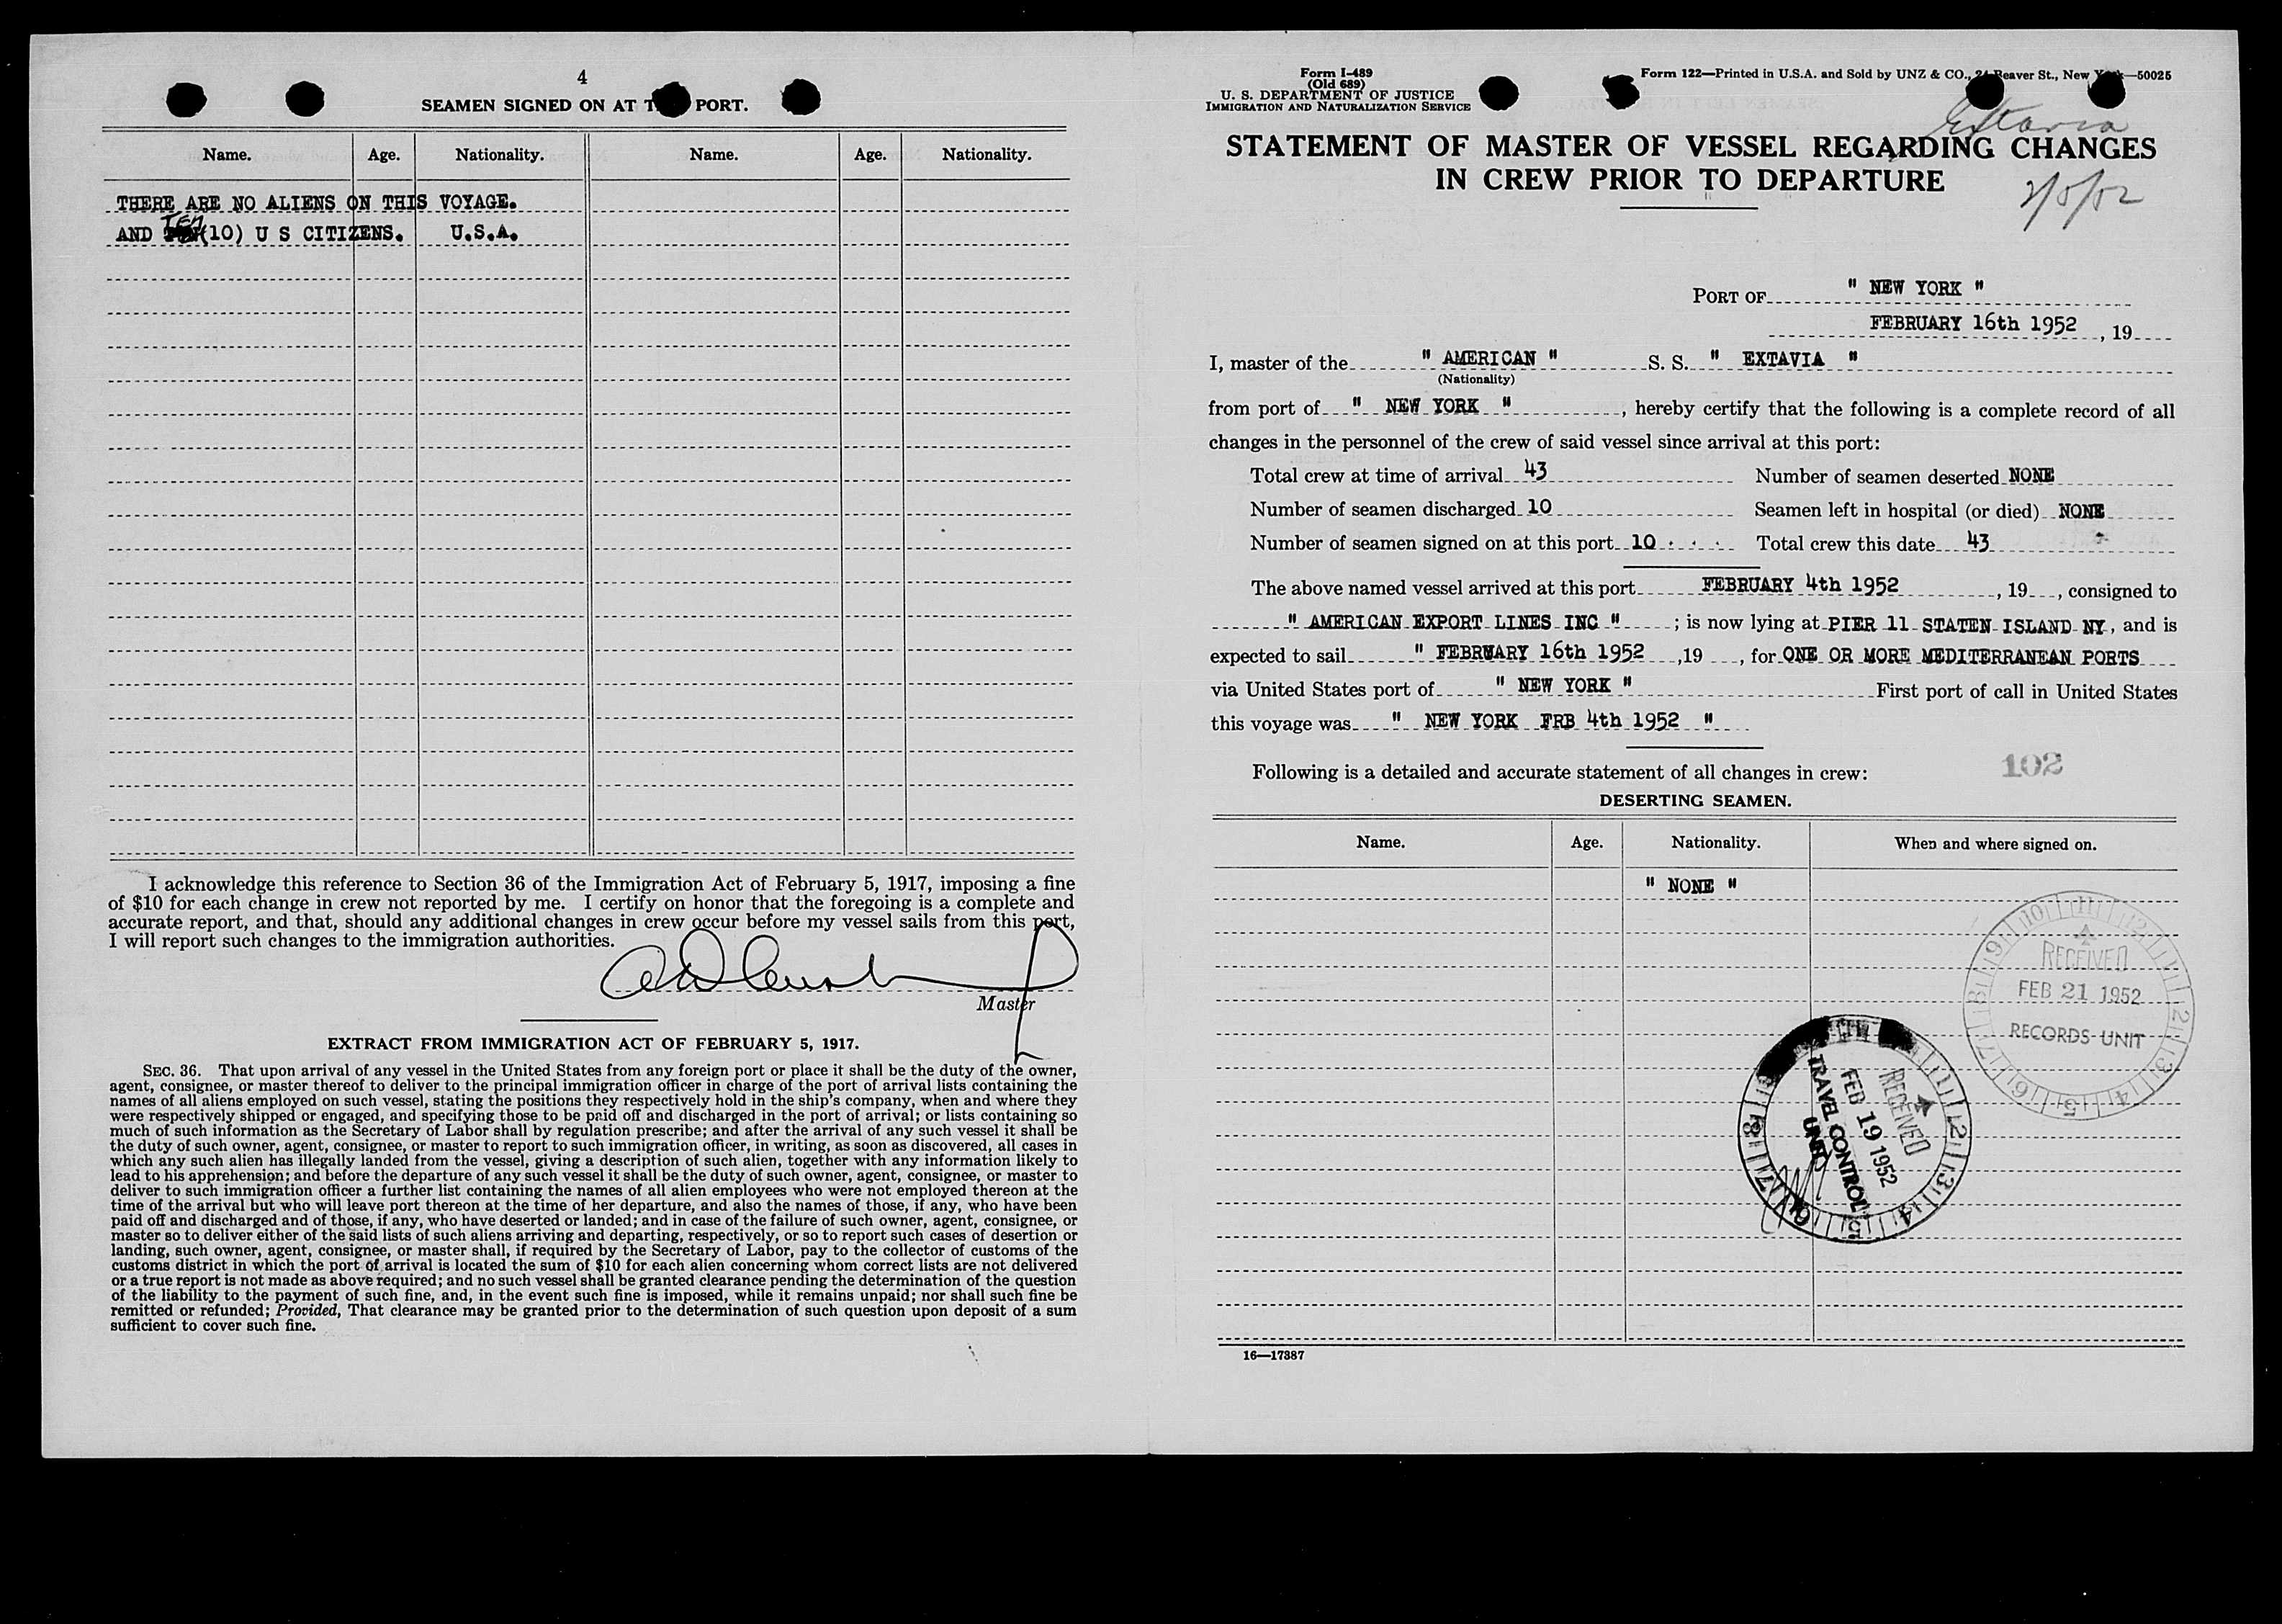 4
SEAMEN SIGNED ON AT T PORT.
Name. Age. Nationality. Name. Age. Nationality.
THERE ARE NO ALIENS ON THIS VOYAGE.
AND TEN (10) U S CITIZENS. U.S.A.
I acknowledge this reference to Section 36 of the Immigration Act of February 5, 1917, imposing a fine
of $10 for each change in crew not reported by me. I certify on honor that the foregoing is a complete and
accurate report, and that, should any additional changes in crew occur before my vessel sails from this port,
I will report such changes to the immigration authorities.
Master
EXTRACT FROM IMMIGRATION ACT OF FEBRUARY 5, 1917.
SEC. 36. That upon arrival of any vessel in the United States from any foreign port or place it shall be the duty of the owner,
agent, consignee, or master thereof to deliver to the principal immigration officer in charge of the port of arrival lists containing the
names of all aliens employed on such vessel, stating the positions they respectively hold in the ship's company, when and where they
were respectively shipped or engaged, and specifying those to be paid off and discharged in the port of arrival; or lists containing so
much of such information as the Secretary of Labor shall by regulation prescribe; and after the arrival of any such vessel it shall be
the duty of such owner, agent, consignee, or master to report to such immigration officer, in writing, as soon as discovered, all cases in
which any such alien has illegally landed from the vessel, giving a description of such alien, together with any information likely to
lead to his apprehension; and before the departure of any such vessel it shall be the duty of such owner, agent, consignee, or master to
deliver to such immigration officer a further list containing the names of all alien employees who were not employed thereon at the
time of the arrival but who will leave port thereon at the time of her departure, and also the names of those, if any, who have been
paid off and discharged and of those, if any, who have deserted or landed; and in case of the failure of such owner, agent, consignee, or
master so to deliver either of the said lists of such aliens arriving and departing, respectively, or so to report such cases of desertion or
landing, such owner, agent, consignee, or master shall, if required by the Secretary of Labor, pay to the collector of customs of the
customs district in which the port of arrival is located the sum of $10 for each alien concerning whom correct lists are not delivered
or a true report is not made as above required; and no such vessel shall be granted clearance pending the determination of the question
of the liability to the payment of such fine, and, in the event such fine is imposed, while it remains unpaid; nor shall such fine be
remitted or refunded; Provided, That clearance may be granted prior to the determination of such question upon deposit of a sum
sufficient to cover such fine.
Form I-489
(Old 689)
U. S. DEPARTMENT OF JUSTICE
IMMIGRATION AND NATURALIZATION SERVICE
Form 122—Printed in U.S.A. and Sold by UNZ & CO., 24 Beaver St., New York—50025
Extavia
STATEMENT OF MASTER OF VESSEL REGARDING CHANGES
IN CREW PRIOR TO DEPARTURE
2/5/52
PORT OF " NEW YORK "
FEBRUARY 16th 1952, 19
I, master of the " AMERICAN " S. S. " EXTAVIA "
(Nationality)
from port of " NEW YORK ", hereby certify that the following is a complete record of all
changes in the personnel of the crew of said vessel since arrival at this port:
Total crew at time of arrival 43 Number of seamen deserted NONE
Number of seamen discharged 10 Seamen left in hospital (or died) NONE
Number of seamen signed on at this port 10 Total crew this date 43
The above named vessel arrived at this port FEBRUARY 4th 1952, 19, consigned to
" AMERICAN EXPORT LINES INC "; is now lying at PIER 11 STATEN ISLAND NY, and is
expected to sail " FEBRUARY 16th 1952 ,19 , for ONE OR MORE MEDITERRANEAN PORTS
via United States port of " NEW YORK " First port of call in United States
this voyage was " NEW YORK FRB 4th 1952 "
102
Following is a detailed and accurate statement of all changes in crew:
DESERTING SEAMEN.
Name. Age. Nationality. When and where signed on.
" NONE "
RECEIVED
FEB 21 1952
RECORDS UNIT
RECEIVED
FEB 19 1952
TRAVEL CONTROL
UNIT
16—17387